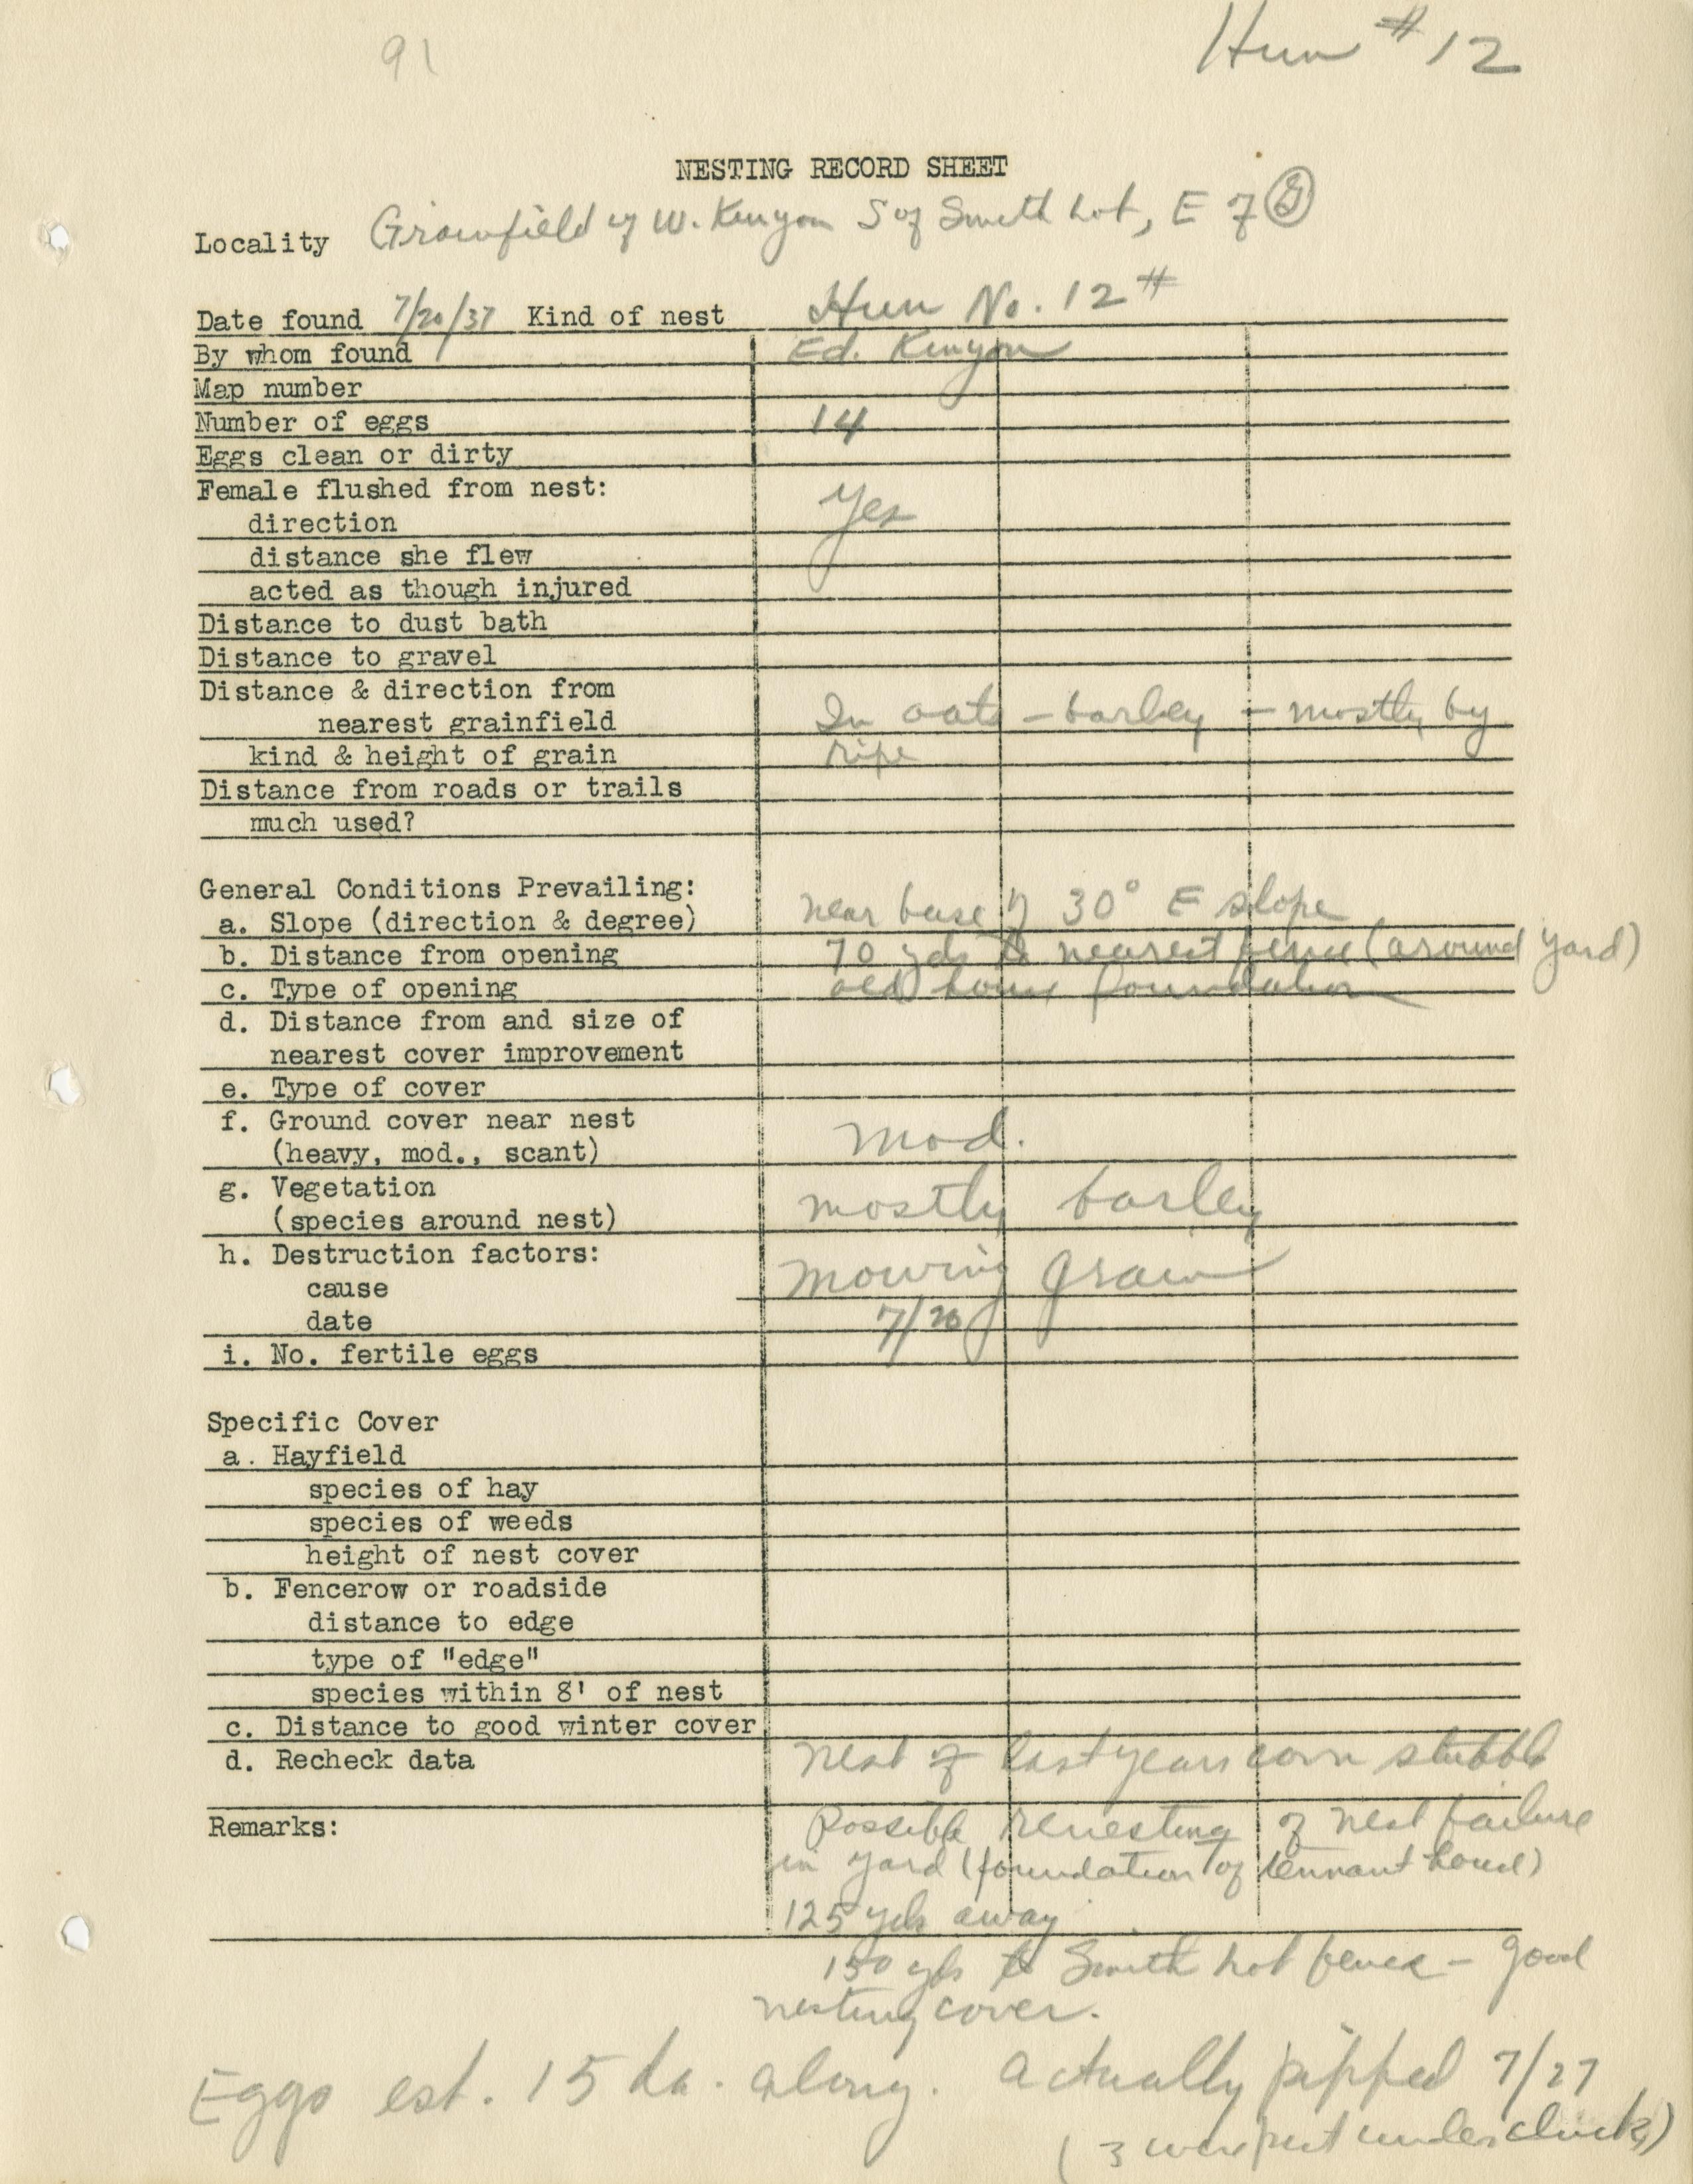 91
Hun # 12
NESTING RECORD SHEET
Locality Grainfield of W. Kenyon S of Smith lot, E 7
Date found 7/20/37 Kind of nest Hun No. 12 #
By whom found Ed. Kenyon
Map number
Number of eggs 14
Eggs clean or dirty
Female flushed from nest: Yes
direction
distance she flew
acted as though injured
Distance to dust bath
Distance to gravel
Distance & direction from
nearest grainfield In oats - barley - mostly by
kind & height of grain ripe
Distance from roads or trails
much used?
General Conditions Prevailing:
a. Slope (direction & degree) near base of 30° E slope
b. Distance from opening 70 yds to nearest fence (around yard)
c. Type of opening old house foundation
d. Distance from and size of
nearest cover improvement
e. Type of cover
f. Ground cover near nest
(heavy, mod., scant) mod.
g. Vegetation
(species around nest) mostly barley
h. Destruction factors:
cause mowing grain
date 7/20
i. No. fertile eggs
Specific Cover
a. Hayfield
species of hay
species of weeds
height of nest cover
b. Fencerow or roadside
distance to edge
type of "edge"
species within 8' of nest
c. Distance to good winter cover
d. Recheck data nest of last years corn stubble
Remarks: Possible renesting of nest failure
in yard (foundation of tennant house)
125 yds away
150 yds to Smith lot fence - good
nesting cover.
Eggs est. 15 da. along. Actually pipped 7/27
(3 were put under)